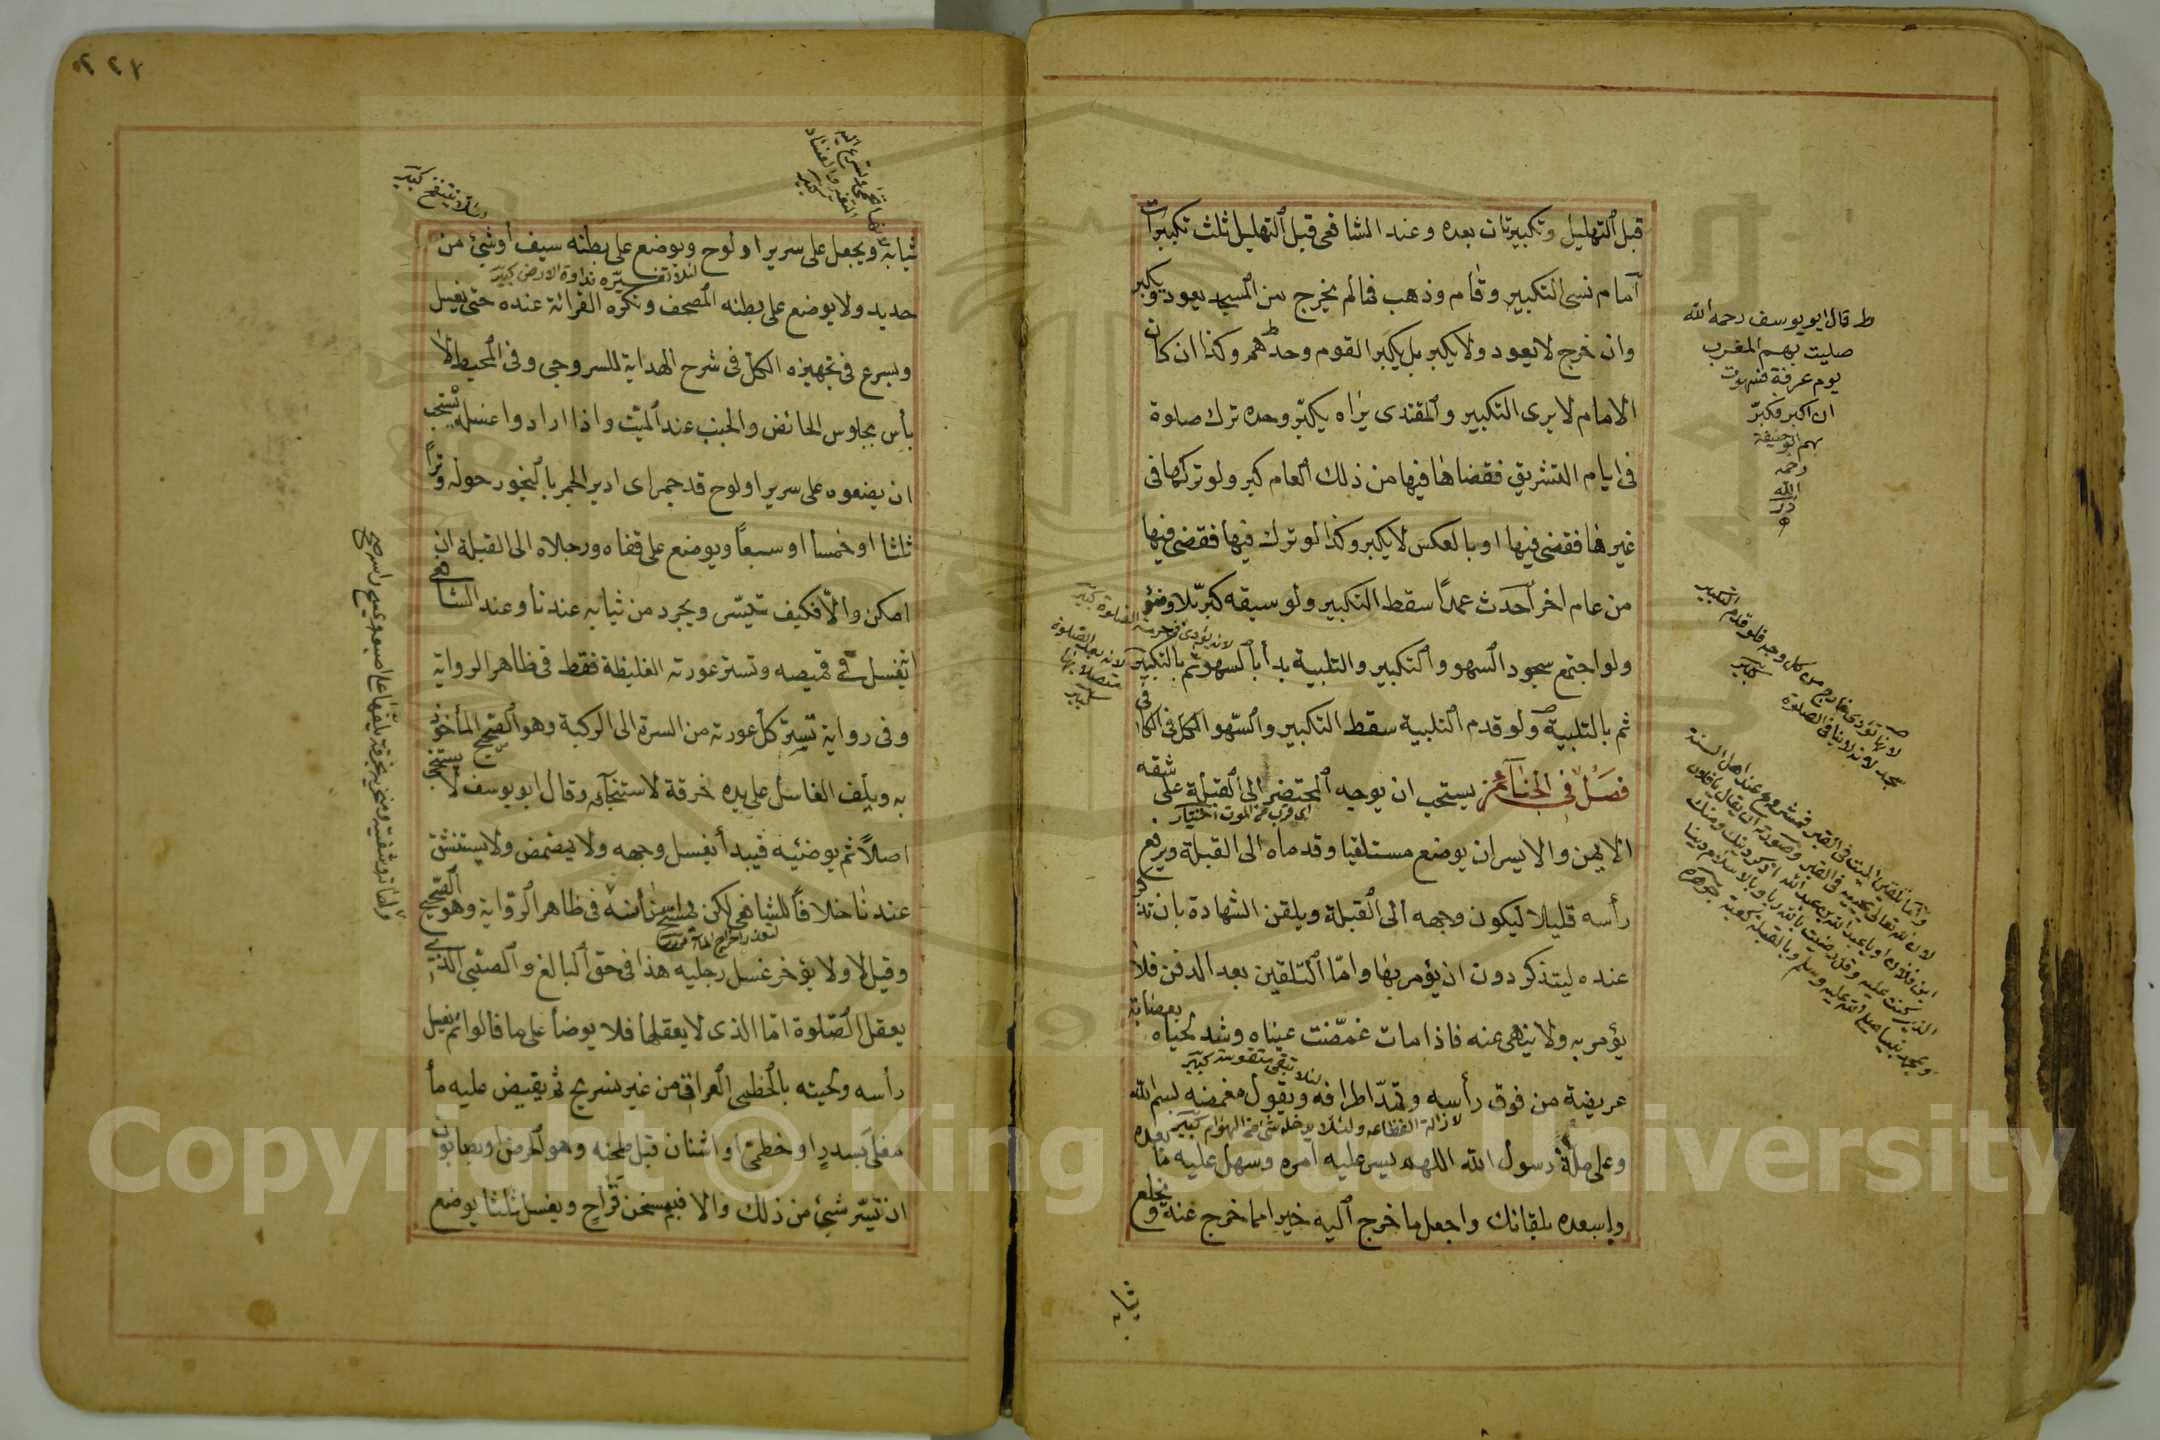 قبل التهليل وتكبيرتان بعده وعند الشافعى قبل التهليل ثلث تكبيرات
امام نسى التكبير وقام وذهب فمالم يخرج من المسجد يعود ويكبر
وان خرج لا يعود ولا يكبر بل يكبر القوم وحدهم وكذا ان كان
الامام لا يرى التكبير والمقتدى يراه يكبر وحده ترك صلوة
فى ايام التشريق فقضاها فيها من ذلك العام كبر ولو تركها فى
غيرها فقضى فيها او بالعكس لا يكبر وكذا لو ترك فيها فقضى فيها
من عام اخر احدث عمدًا سقط التكبير ولو سبقه كبر بلا وضوء
ولو اجتمع سجود السهو والتكبير والتلبية بدأ بالسهو ثم بالتكبير
ثم بالتلبية ولو قدم التلبية سقط التكبير والسهو الكل فى الكافى
فصل فى الجنائز يستحب ان يوجه المحتضر الى القبلة على شقه
اى قرب من الموت اختيار
الايمن والايسر ان يوضع مستلقيا وقدماه الى القبلة ويرفع
رأسه قليلا ليكون وجهه الى القبلة ويلقن الشهادة بان تذكر
عنده ليتذكر دون ان يؤمر بها واما التلقين بعد الدفن فلا
يؤمر به ولا ينهى عنه فاذا مات غمضت عيناه وشد لحياه بعصابة
لئلا تبقى متقوسة كبير
عريضة من فوق رأسه وتمد اطرافه ويقول مغمضه بسم الله
وعلى ملة رسول الله اللهم يسر عليه امره وسهل عليه ما بعده
واسعده بلقائك واجعل ما خرج اليه خيرا مما خرج عنه ويخلع
ثيابه
ط قال ابو يوسف رحمه الله
صليت بهم المغرب
يوم عرفة فسهوت
ان اكبر وكبر
بهم ابو حنيفة
رحمه
الله
لانه يؤدى فى حرمة الصلوة كبير
ثيابه ويجعل على سرير او لوح ويوضع على بطنه سيف او شئ من
لئلا تغيره نداوة الارض كبير
حديد ولا يوضع على بطنه المصحف وتكره القرائة عنده حتى يغسل
ويسرع فى تجهيزه الكل فى شرح الهداية للسروجى وفى المحيط لا
بأس بجلوس الحائض والجنب عند الميت واذا ارادوا غسله يستحب
ان يضعوه على سرير او لوح قد جمر اى ادير المجمر بالبخور حوله وترا
ثلثا او خمسا او سبعا ويوضع على قفاه ورجلاه الى القبلة ان
امكن والا فكيف تيسر ويجرد من ثيابه عندنا وعند الشافعى
يغسل فى قميصه وتستر عورته الغليظة فقط فى ظاهر الرواية
وفى رواية تستر كل عورته من السرة الى الركبة وهو الصحيح المأخوذ
به ويلف الغاسل على يده خرقة لاستنجائه وقال ابو يوسف لا يستنجى
اصلا ثم يوضئه فيبدأ بغسل وجهه ولا يمضمض ولا يستنشق
عندنا خلافا للشافعى لكن يمسح رأسه فى ظاهر الرواية وهو الصحيح
لتعذر اخراج الماء
وقيل لا ولا يؤخر غسل رجليه هذا فى حق البالغ والصبى الذى
يعقل الصلوة اما الذى لا يعقلها فلا يوضأ على ما قالوا ثم يغسل
رأسه ولحيته بالخطمى العراقى من غير تسريح ثم يفيض عليه ماء
مغلى بسدر او خطمى او اشنان قبل طحنه وهو الحرض او بصابون
ان تيسر شئ من ذلك والا فيسخن قراح ويغسل ثلثا يوضع
لئلا ينتفخ كبير
Copyright © King Saud University